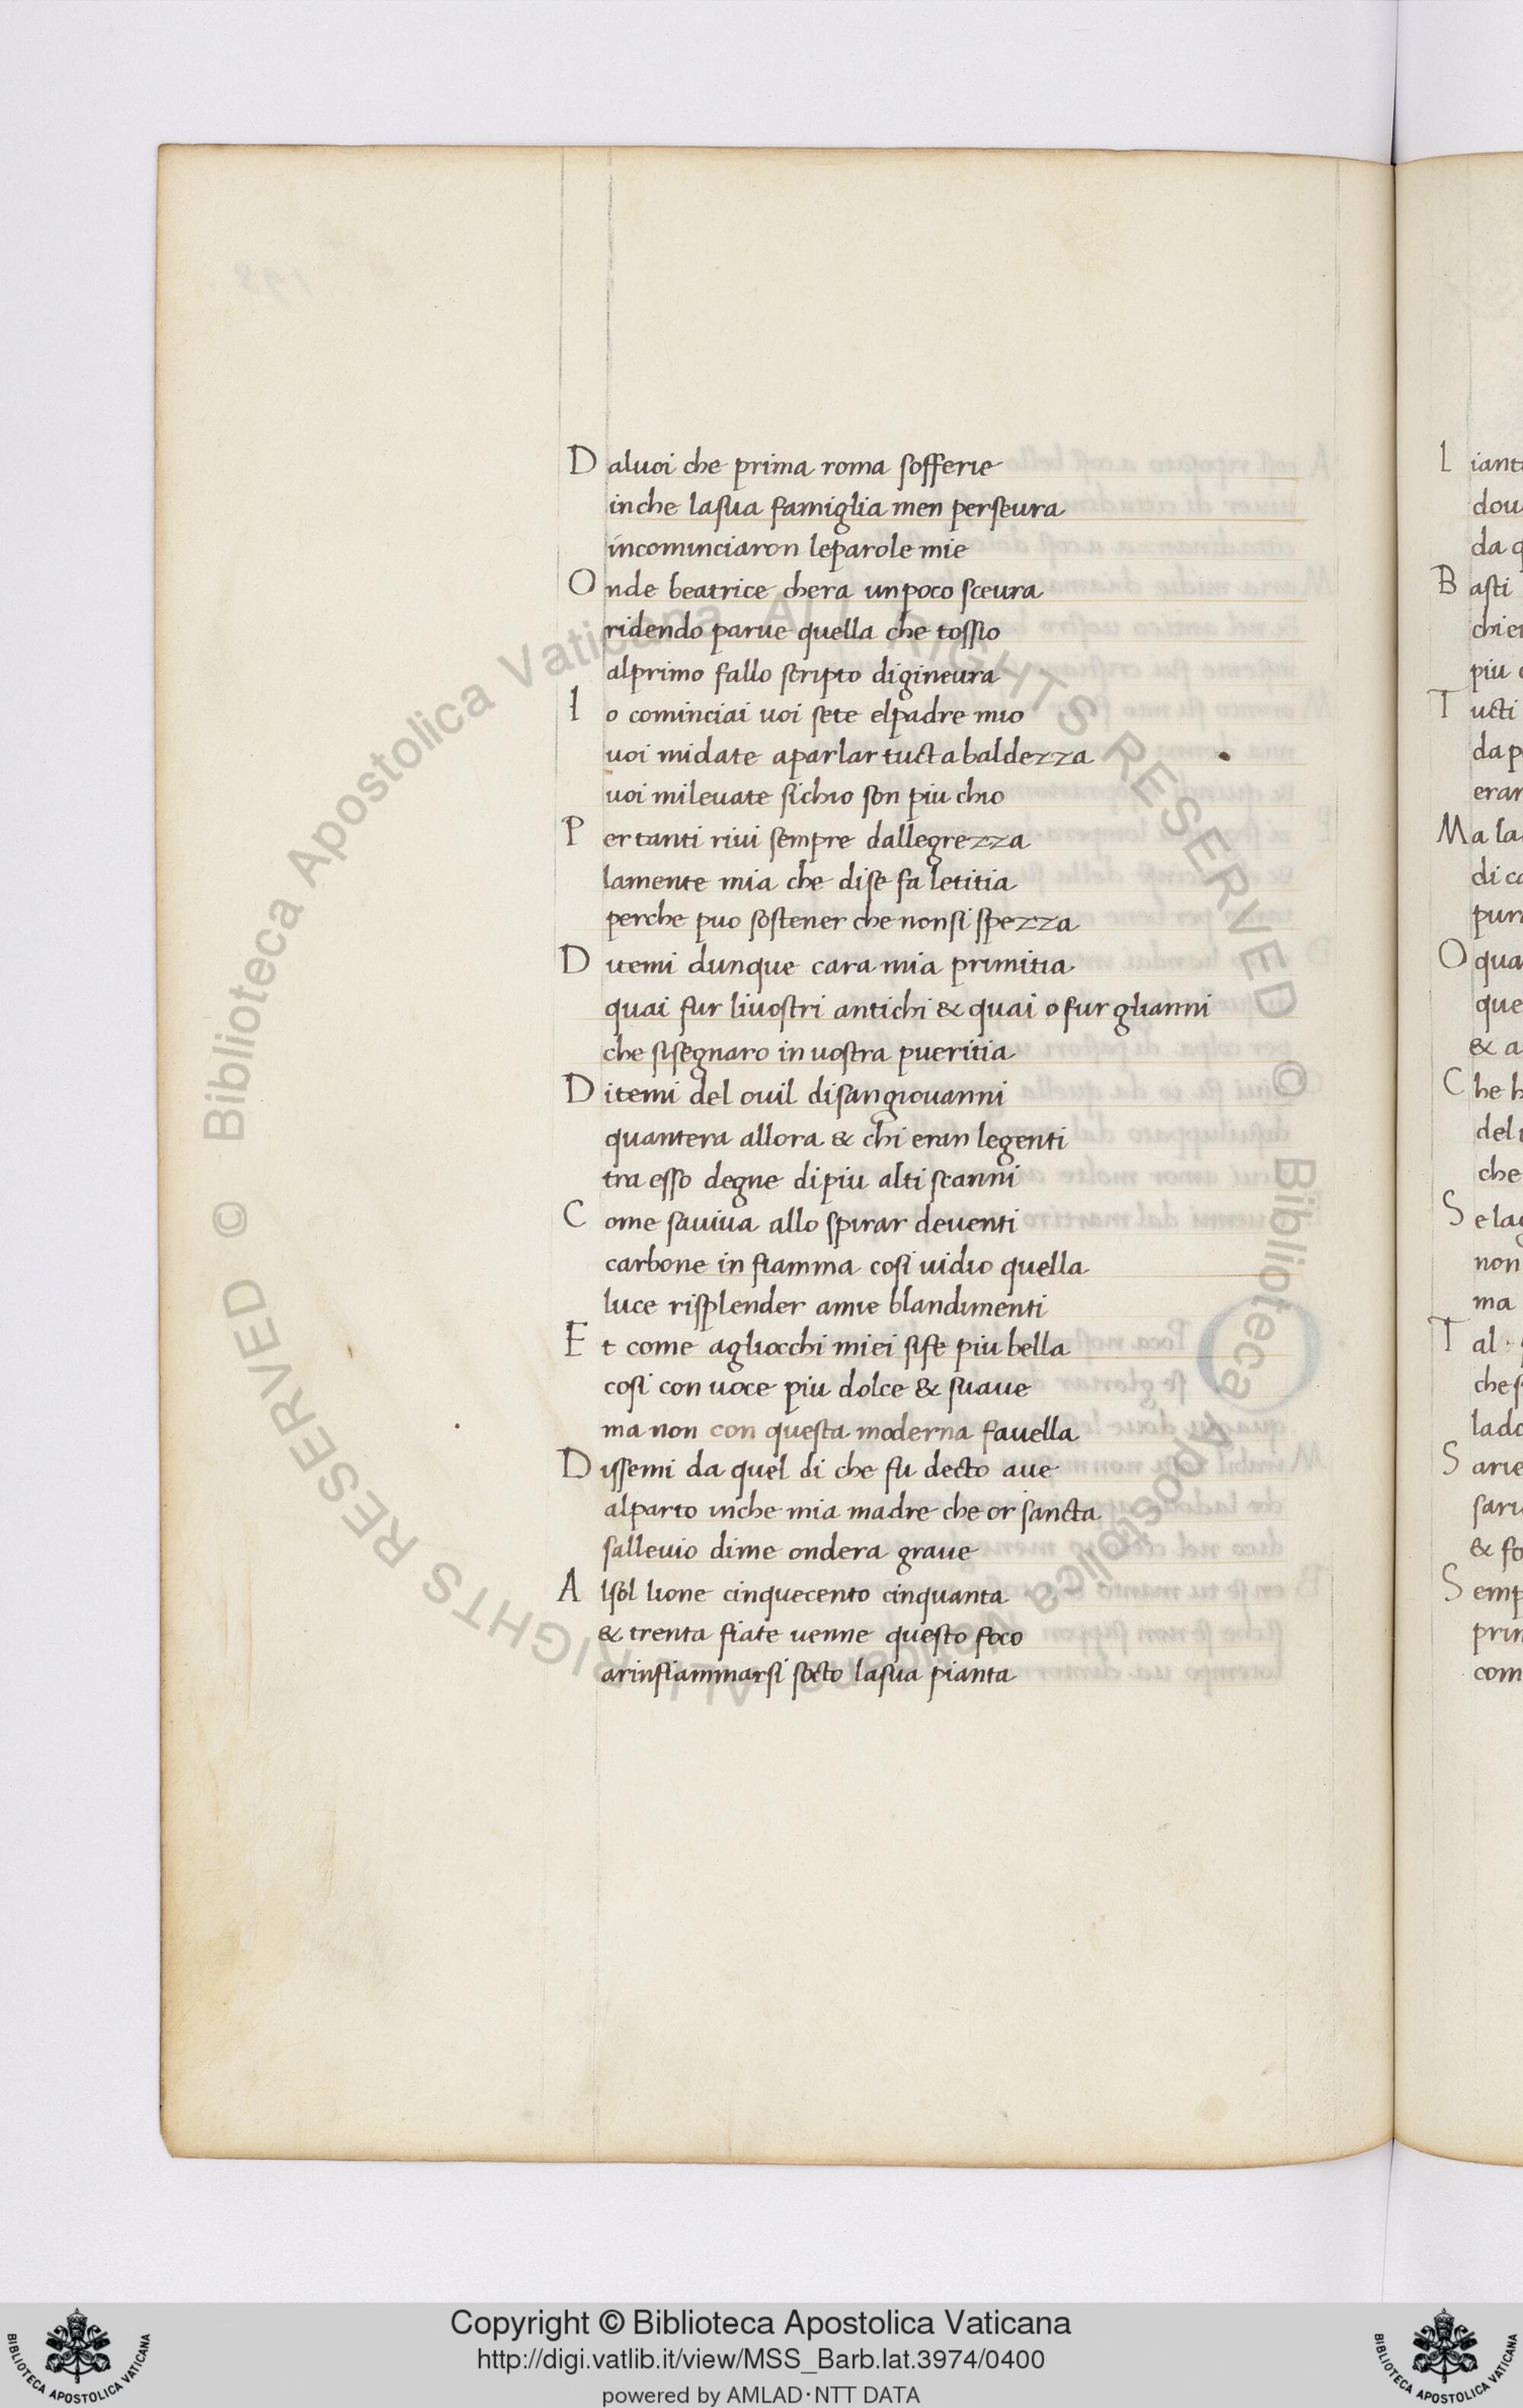 D aluoi che prima roma sofferie
inche lasua famiglia men perseura
incominciaron leparole mie
O nde beatrice chera unpoco sceura
ridendo parue quella che tossio
alprimo fallo scripto digineura
I o cominciai uoi sete elpadre mio
uoi midate aparlar tucta baldezza
uoi mileuate sichio son piu chio
P er tanti riui sempre dallegrezza
lamente mia che dise fa letitia
perche puo sostener che nonsi spezza
D itemi dunque cara mia primitia
quai fur liuostri antichi & quai o fur glianni
che sisegnaro in uostra pueritia
D itemi del ouil disangiouanni
quantera allora & chi eran legenti
tra esso degne dipiu alti scanni
C ome sauiua allo spirar deuenti
carbone in fiamma cosi uidio quella
luce risplender amie blandimenti
E t come agliocchi miei sife piu bella
cosi con uoce piu dolce & suaue
ma non con questa moderna fauella
D issemi da quel di che fu decto aue
alparto inche mia madre che or sancta
salleuio dime ondera graue
A lsol lione cinquecento cinquanta
& trenta fiate uenne questo foco
arinfiammarsi socto lasua pianta
L iant
dou
da q
B asti
chi er
piu
T ucti
da p
eran
M a la
di ca
pur
O qua
que
& a
C he h
del
che
S e la
non
ma
T al
che s
lado
S arie
sari
& fo
S emp
prin
com
© Biblioteca Apostolica Vaticana ALL RIGHTS RESERVED © Biblioteca Apostolica Vaticana ALL RIGHTS RESERVED
Copyright © Biblioteca Apostolica Vaticana
http://digi.vatlib.it/view/MSS_Barb.lat.3974/0400
powered by AMLAD·NTT DATA
BIBLIOTECA APOSTOLICA VATICANA
BIBLIOTECA APOSTOLICA VATICANA